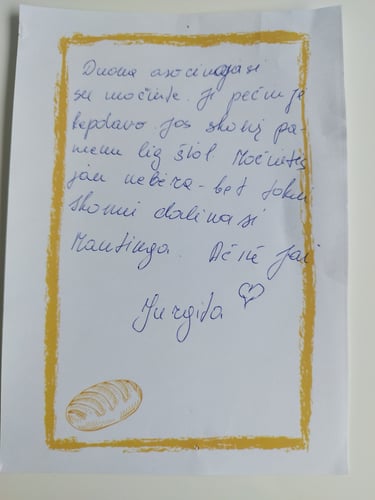 Duona asocijuojasi
su močiute. Ji pečiuje
kepdavo. Jos skonį pa-
menu lig šiol. Močiutės
jau nebėra - bet tokiu
skoniu dalinasi
Mantinga. Ačiū jai
Jurgita